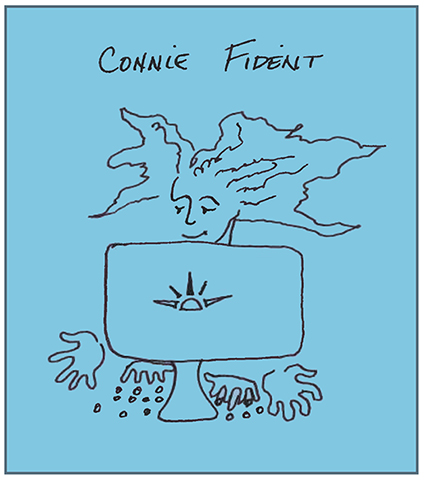 Connie Fident